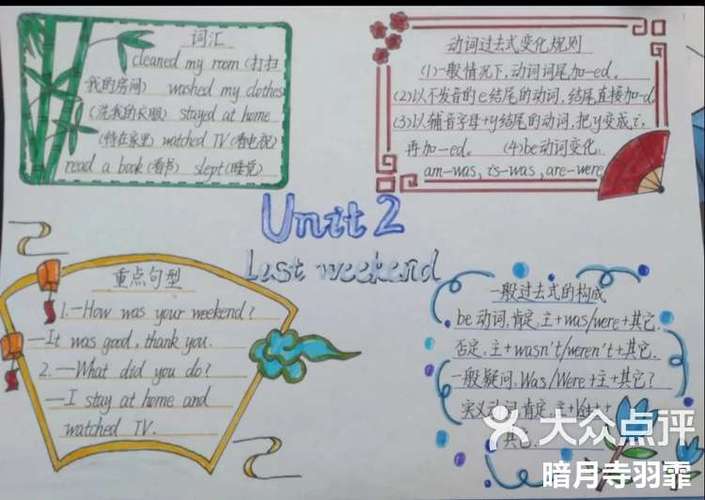 词汇
cleaned my room (打扫
我的房间) washed my clothes
(洗我的衣服) stayed at home
(待在家里) watched TV (看电视)
read a book (看书) slept (睡觉)
动词过去式变化规则
(1)一般情况下,动词词尾加-ed.
(2)以不发音的e结尾的动词,结尾直接加-d
(3)以辅音字母+y结尾的动词,把y变成i,
再加-ed. (4)be动词变化.
am-was, is-was, are-were
Unit 2
Last weekend
重点句型
1.—How was your weekend?
—It was good, thank you.
2.—What did you do?
—I stay at home and
watched TV.
一般过去式的构成
be 动词,肯定,主+was/were+其它.
否定,主+wasn't/weren't+其它.
一般疑问,Was/Were+主+其它?
实义动词,肯定,主+
其它.
大众点评
暗月寺羽霏